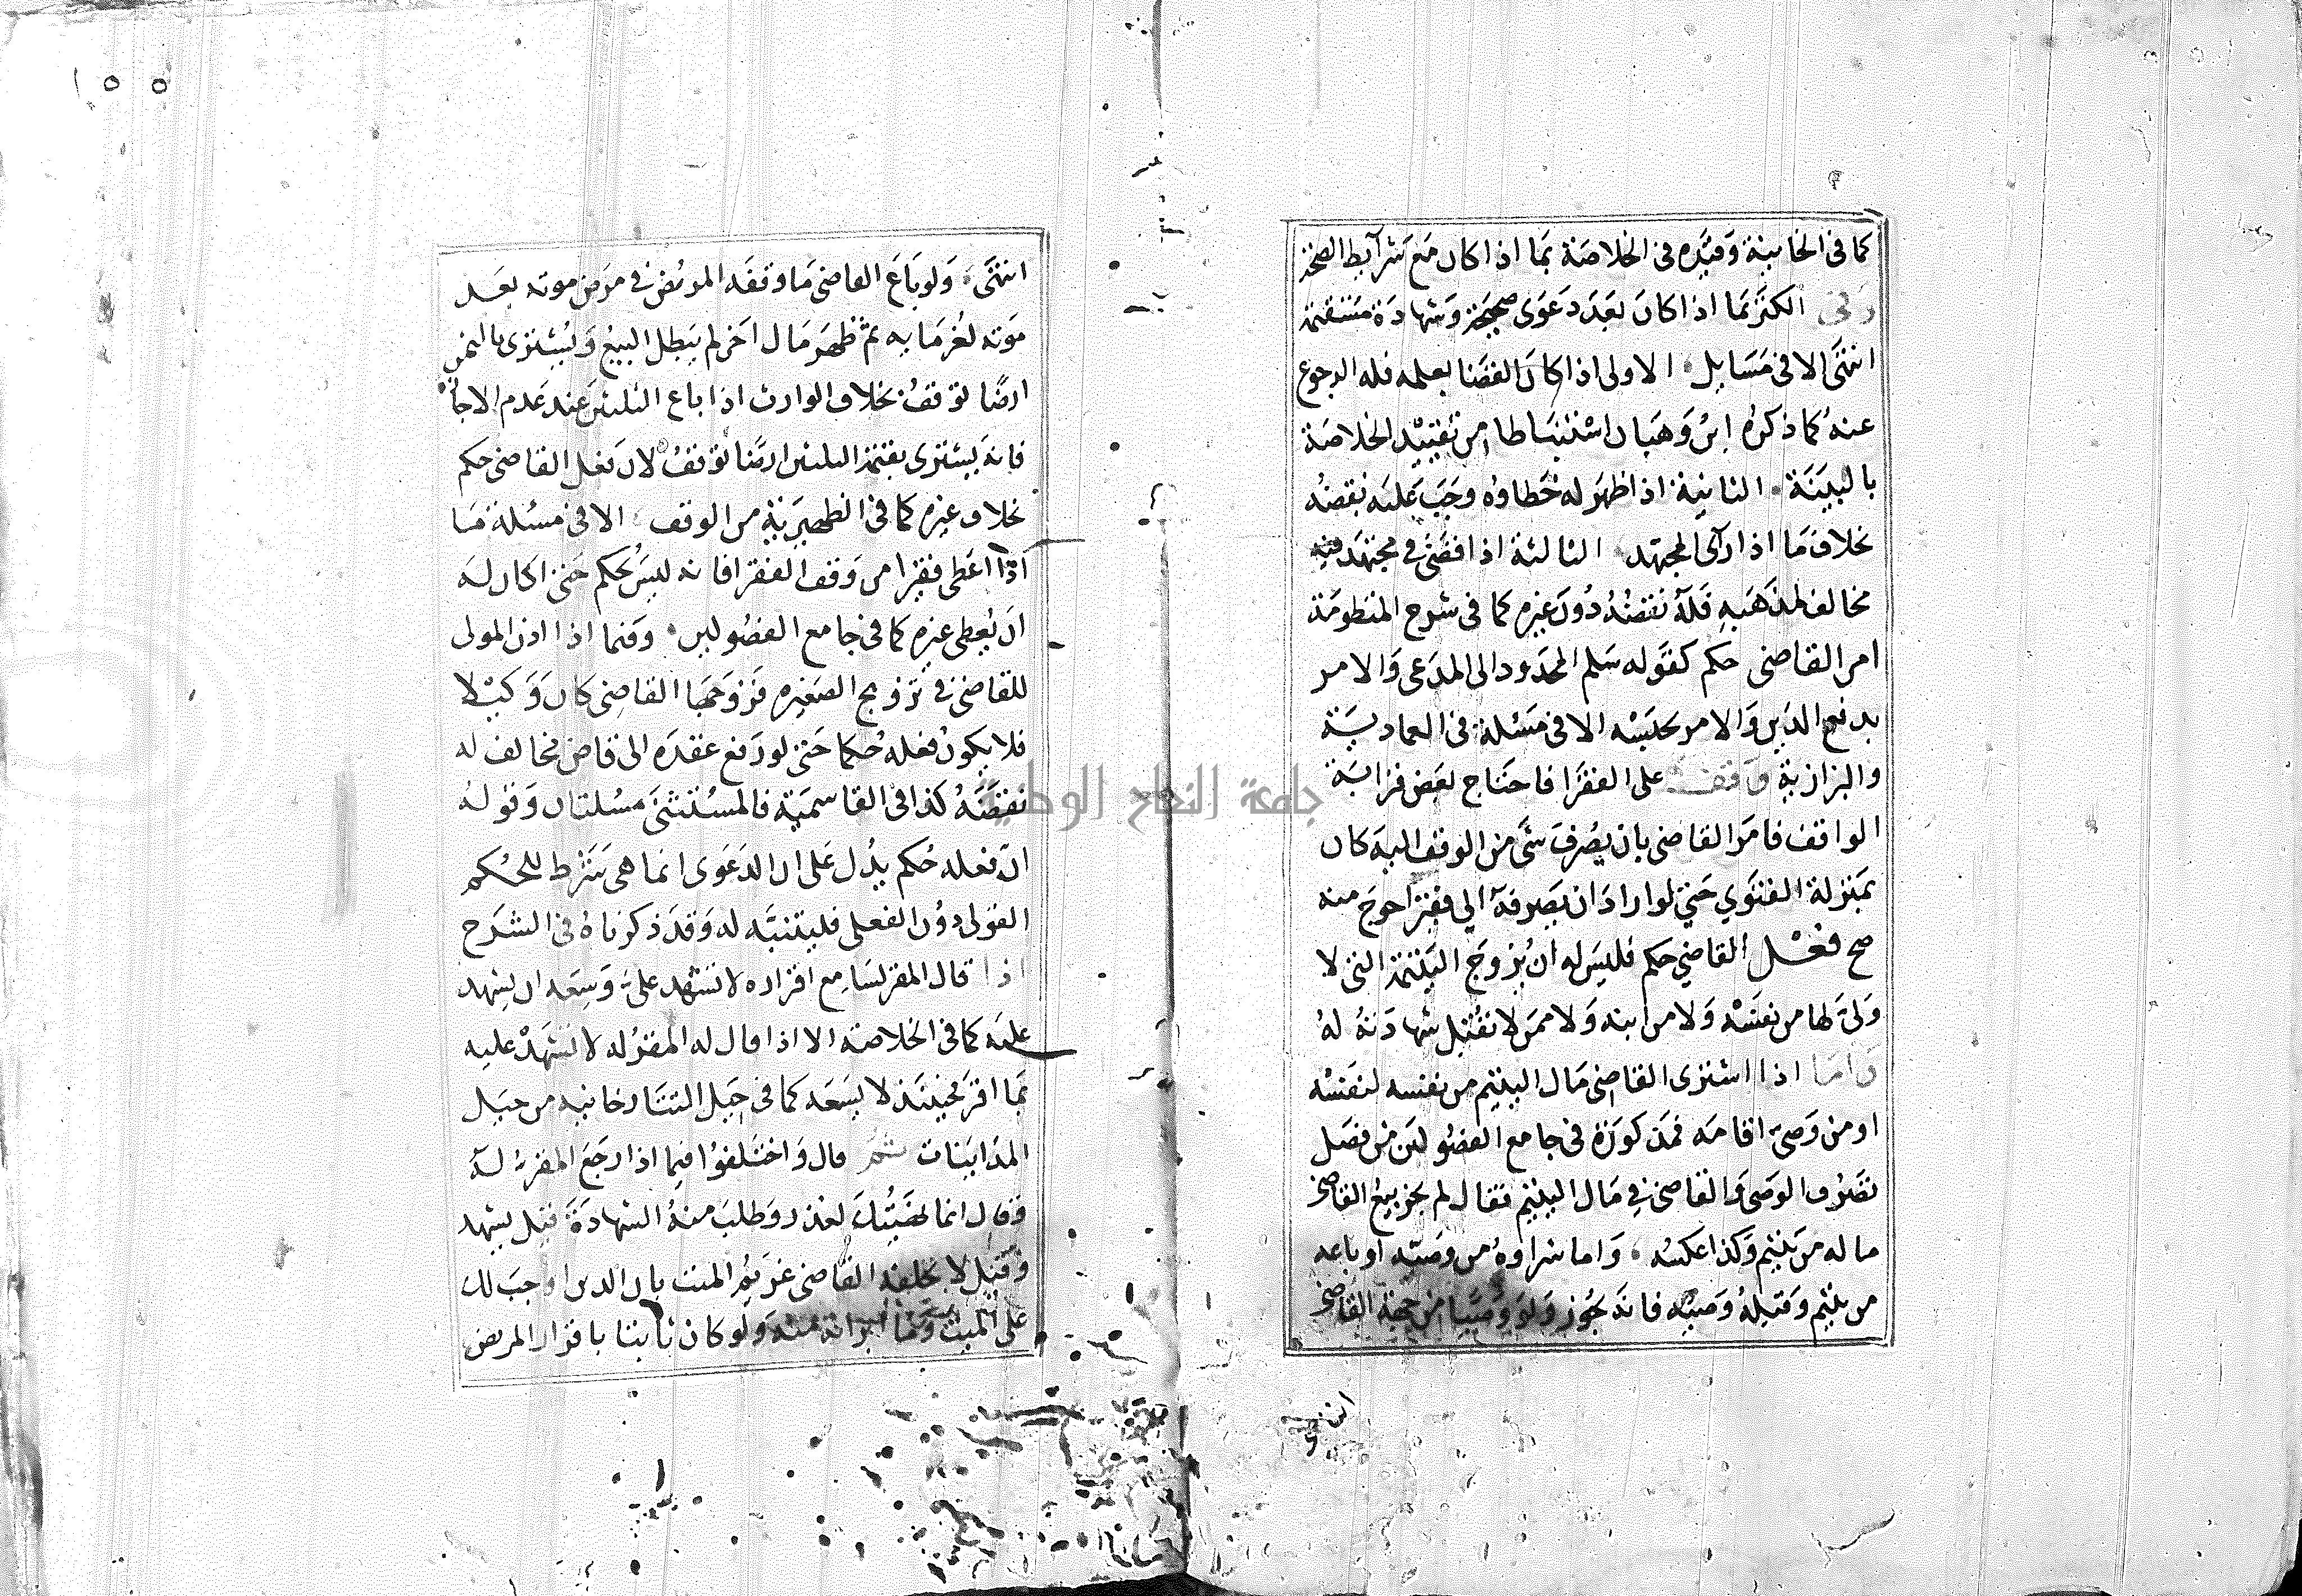 كما في الخانية وقيده في الخلاصة بما اذا كان مع شرآيط الصحة
وفي الكنز بما اذا كان بعد دعوى صحيحة وشهادة مستقيمة
انتهى الا في مسايل الاولى اذا كان القضا بعلمه فله الرجوع
عنه كما ذكره ابن وهبان استنباطا من تقييد الخلاصة
بالبينة الثانية اذا ظهر له خطاوه وجب عليه نقضه
بخلاف ما اذا رآى المجتهد الثالثة اذا قضى في مجتهد فيه
مخالف لمذهبه فله نقضه دون غيره كما في شرح المنظومة
امر القاضي حكم كقوله سلم المحدود الى المدعى والامر
بدفع الدين والامر بحبسه الا في مسئلة في العمادية
والبزازية وقف على الفقرا فاحتاج بعض قرابة
الواقف فامر القاضي بان يصرف شي من الوقف اليه كان
بمنزلة الفتوي حتي لو اراد ان يصرفه الي فقير احوج منه
صح فعل القاضي حكم فليس له ان يزوج اليتيمة التي لا
ولى لها من نفسه ولا من ابنه ولا ممن لا تقبل شهادته له
واما اذا اشترى القاضي مال اليتيم من نفسه لنفسه
او من وصى اقامه فمذكورة في جامع الفصولين من فصل
تصرف الوصى والقاضي في مال اليتيم فقال لم يجز بيع القاضي
ماله من يتيم وكذا عكسه واما شراوه من وصيه او باعه
من يتيم وقبله وصيه فانه يجوز ولو وصيا من جهة القاضي
انتهى
١٥٥
انتهى ولو باع القاضي ما وقفه المريض في مرض موته بعد
موته لغرمايه ثم ظهر مال اخر لم يبطل البيع ويشترى بالثمن
ارضا توقف بخلاف الوارث اذا باع الثلثين عند عدم الاجازة
فانه يشترى بقيمة الثلثين ارضا توقف لان فعل القاضي حكم
بخلاف غيره كما في الظهيرية من الوقف الا في مسئلة ما
اذا اعطى فقيرا من وقف الفقرا فانه ليس بحكم حتى كان له
ان يعطى غيره كما في جامع الفصولين وفيما اذا اذن المولى
للقاضي في تزويج الصغيره فزوجها القاضي كان وكيلا
فلا يكون فعله حكما حتى لو رفع عقده الى قاض مخالف له
نقضه كذا في القاسمية فالمستثنى مسئلتان وقوله
ان فعله حكم يدل على ان الدعوى انما هي شرط للحكم
القولى دون الفعلى فليتنبه له وقد ذكرناه في الشرح
اذا قال المقر لسامع اقراره لا تشهد على وسعه ان يشهد
عليه كما في الخلاصة الا اذا قال له المقر له لا تشهد عليه
بما اقر فحينئذ لا يسعه كما في حيل التتارخانيه من حيل
المداينات ثم قال واختلفوا فيما اذا رجع المقر له
وقال انما نهيتك لعذر وطلب منه الشهادة قيل يشهد
وقيل لا يحلف القاضي غريم الميت بان الدين واجب لك
على الميت وما ابراته منه ولو كان ثابتا باقرار المريض
جامعة النجاح الوطنية